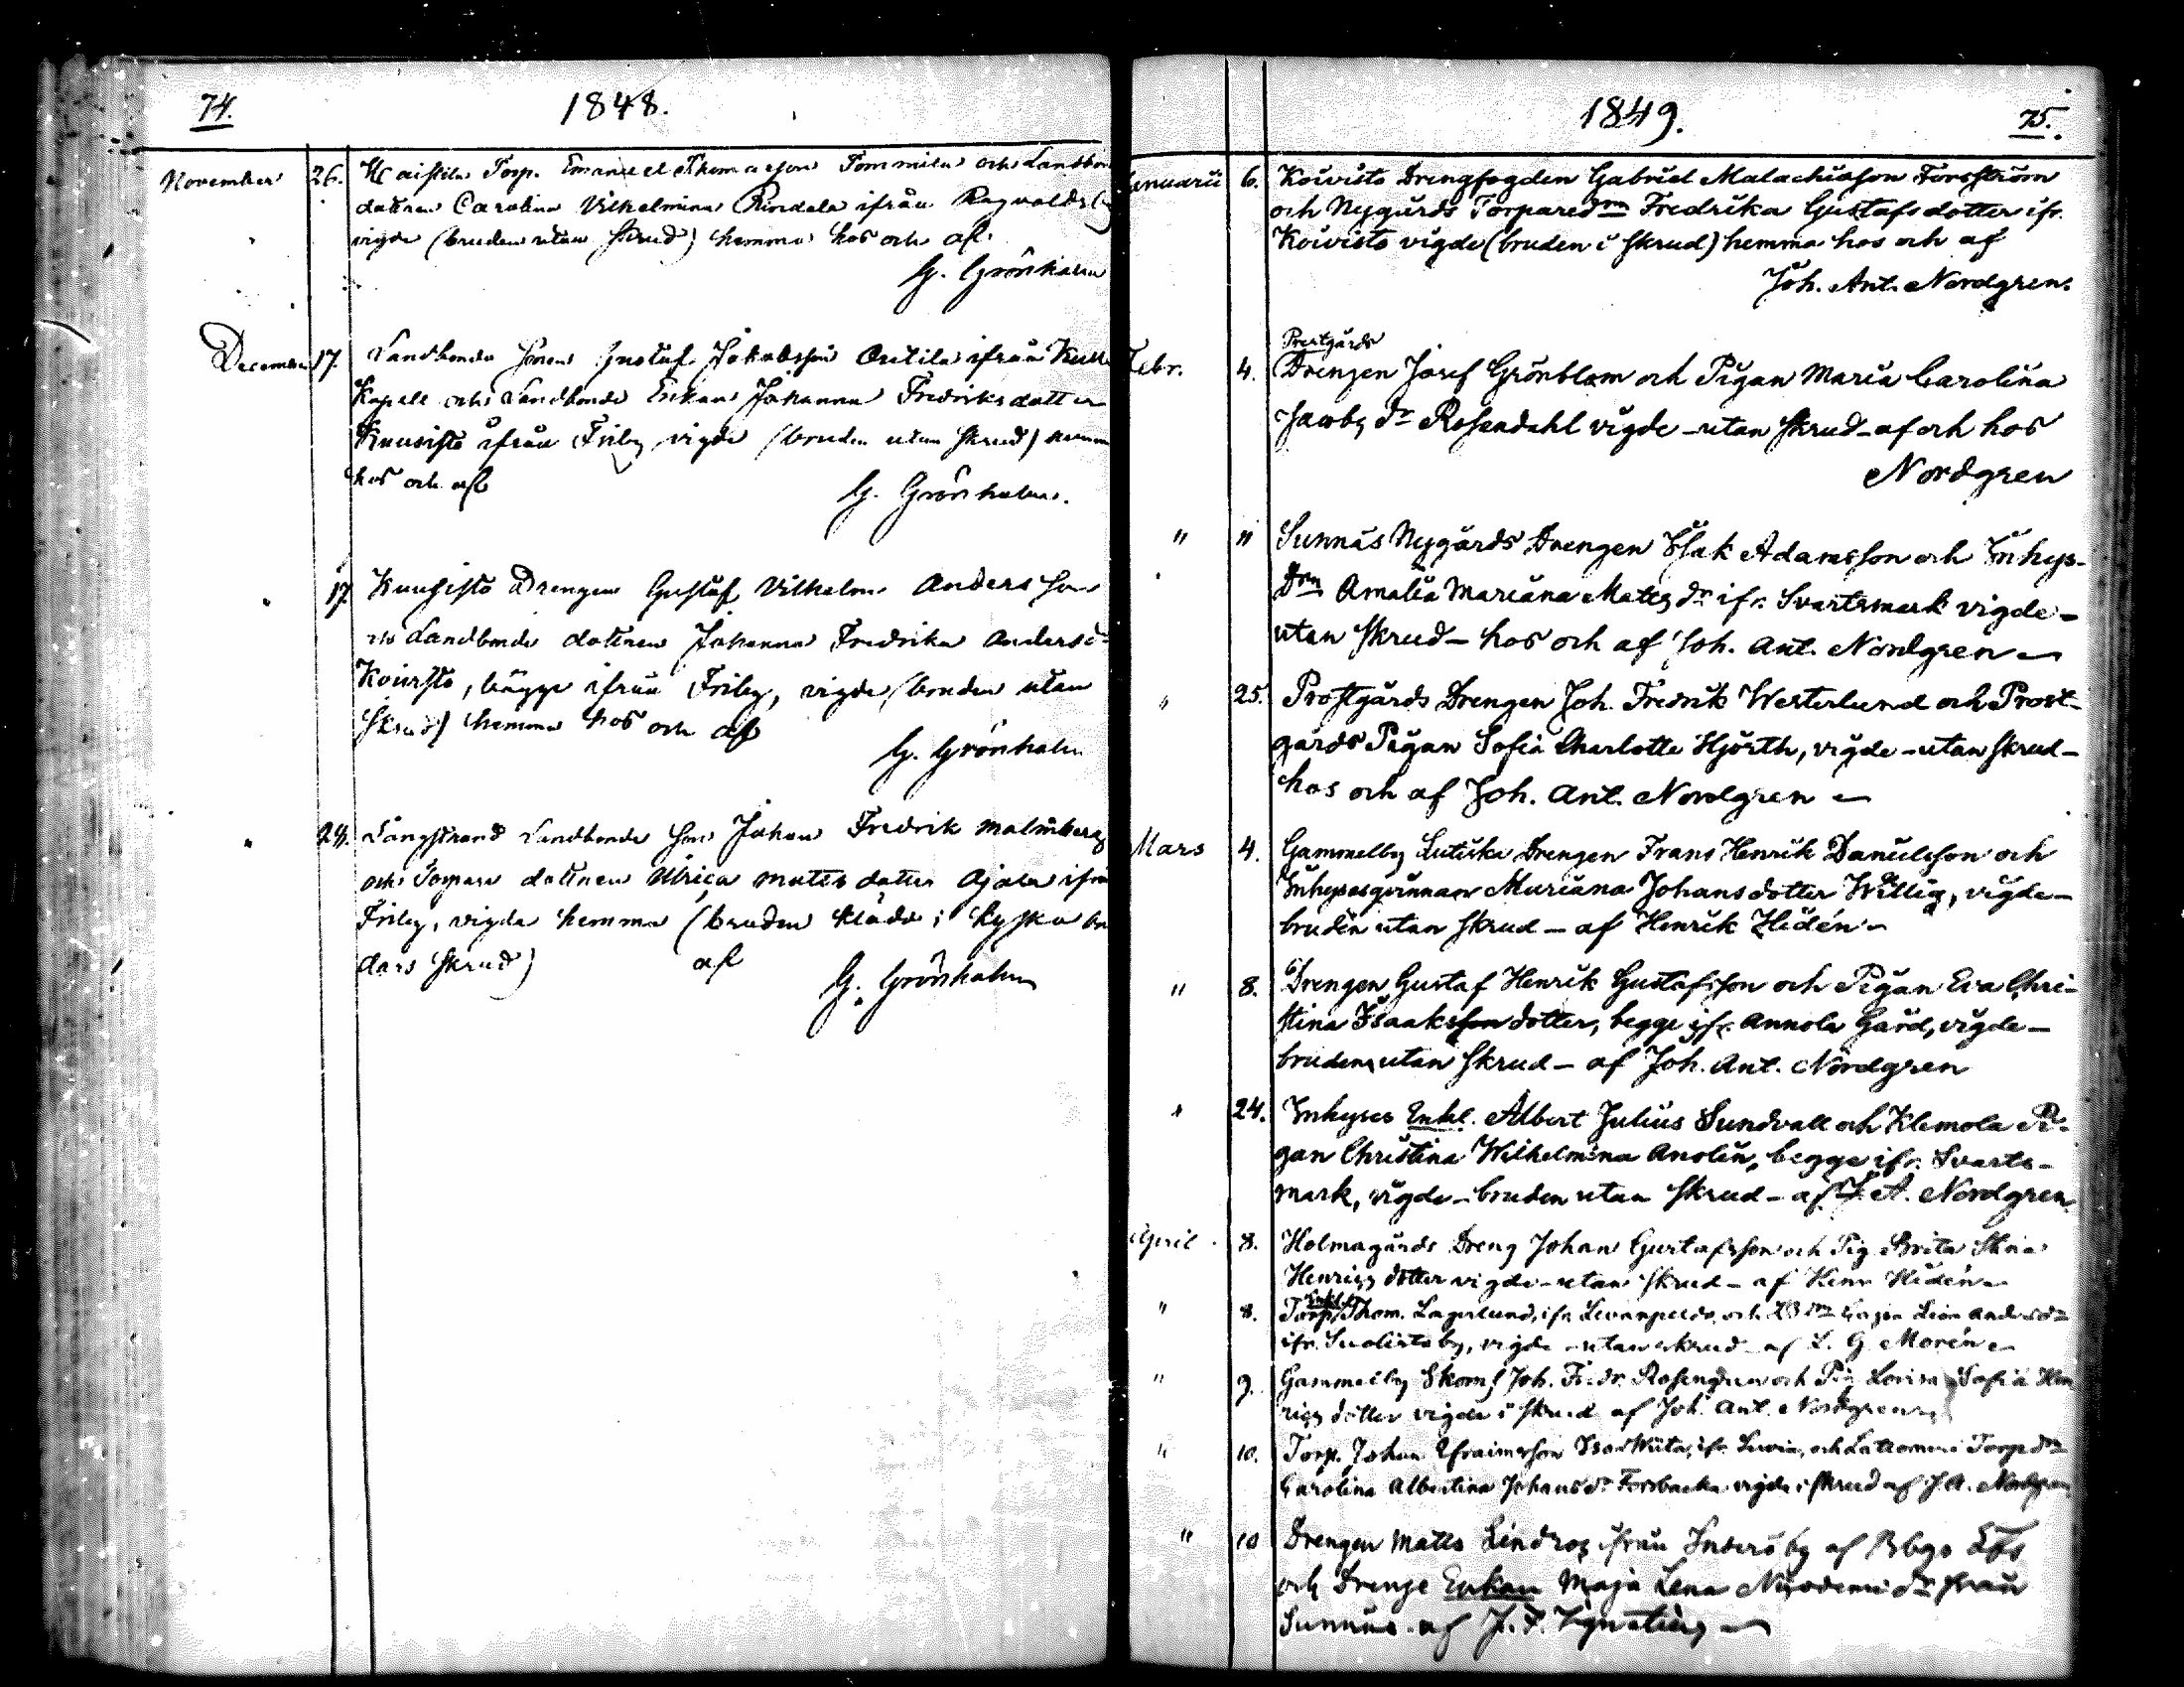 74.
1848.
November 26. Torp. Emanuel Thomasson Tommila och Landbon
dottren Carolina Vilhelmina Rindala ifrån Ragvalds
vigde (bruden utan skrud) hemma hos och af
G. Grönholm
December 17. Landbonde sonen Gustaf Jakobsson ifrån
Kapell och Landbonde Enkan Johanna Fredriksdotter
Kuusisto ifrån Friby vigde (bruden utan skrud) hemma
hos och af
G. Grönholm.
" 17. Kuusisto Drengen Gustaf Vilhelm Andersson
Landbonde dottren Johanna Fredrika Andersd
Koivisto, bägge ifrån Friby, vigde (bruden utan
skrud) hemma hos och af
G. Grönholm
" 24. Långstrand Landbonde son Johan Fredrik Malmberg
och Torpare dottren Ulrica Matts dotter Ojala ifrån
Friby, vigda hemma (bruden klädd i kyska
dars skrud) af
G. Grönholm
1849.
75.
Januarii 6. Koivisto Drengfogden Gabriel Malachiasson Forsström
och Nygårds Torparedrn Fredrika Gustafsdotter ifr.
Koivisto vigde (bruden i skrud) hemma hos och af
Joh. Ant. Nordgren.
Prostgårds
Febr. 4. Drengen Josef Grönblom och Pigan Maria Carolina
Jacobs dr Rosendahl vigde - utan skrud - af och hos
Nordgren
" 11 Sunnäs Nygårds Drengen Isak Adamsson och Inhys-
Drn Amalia Mariana Matts dr ifr. Svartsmark vigde -
utan skrud - hos och af Joh. Ant. Nordgren -
" 25. Prostgårds Drengen Joh. Fredrik Westerlund och Prost-
gårds Pigan Sofia Charlotte Hjorth, vigde - utan skrud -
hos och af Joh. Ant. Nordgren -
Mars 4. Gammelby Drengen Frans Henrik Danielsson och
Inhysesqvinnan Mariana Johansdotter Willig, vigde -
bruden utan skrud - af Henrik Hidén -
" 8. Drengen Gustaf Henrik Gustafsson och Pigan Eva Chri-
stina Isaaksson dotter, begge ifr. Annola Gård, vigde -
bruden utan skrud - af Joh. Ant. Nordgren
" 24. Inhyses Enkl. Albert Julius Sundvall och Klemola Pi-
gan Christina Wilhelmina Anolin, begge ifr. Svarts-
mark, vigde - bruden utan skrud - af J. A. Nordgren
April 8. Holmagårds Dreng Johan Gustafsson och Pig. Brita Stina
Henrics dotter vigde - utan skrud - af Henr. Hidén -
Enkl.
" 8. Torp. Thom. Lagerlund, ifr. och Cajsa Lisa Andersdr
ifr. Suolistoby, vigde - utan skrud - af L. G. Morén -
" 9. Gammelby Skom. Joh. Fredr. Rosengren och Pig. Lovisa Sofia Hen
rics dotter vigde i skrud af Joh. Ant. Nordgren
" 10. Torp. Johan Efraimsson ifr. och Torpdrn
Carolina Albertina Johansdr Forsbacka vigde i skrud af J. A. Nordgren
" 10 Drengen Matts Lindros ifrån by af Borgo
och Drenge Enkan Maja Lena Nicodemi dr från
Sunnäs af J. F. Ignatius -